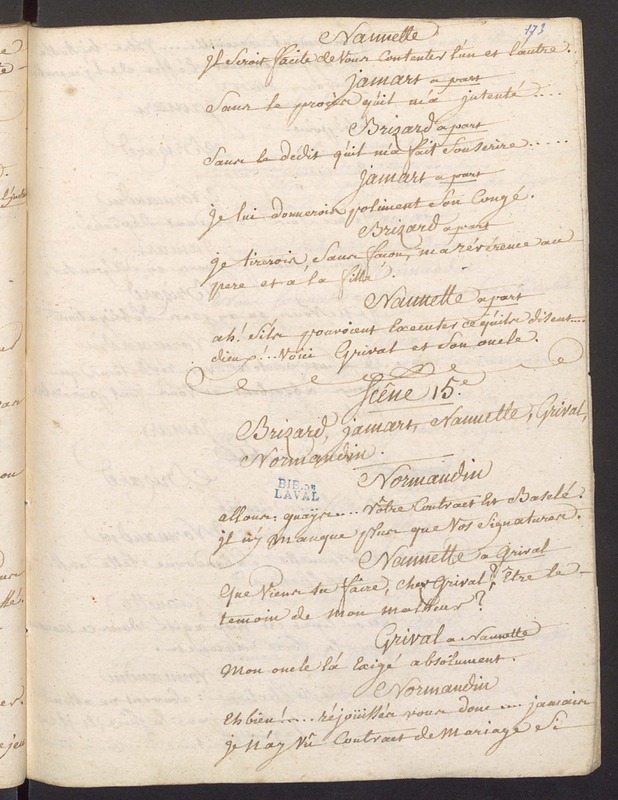 173
Nannette
Il seroit facile de vous contenter l'un et l'autre.
jamart a part
Sans le procès qu'il m'a jntenté....
Brizard a part
Sans le dédit qu'il m'a fait souscrire.....
jamart a part
je lui donnerois poliment son Congé.
Brizard a part
je tirerois sans facon, ma révérence au
pere et a la fille
Nannette a part
ah! s'ils pouvoient Executer ce qu'ils disent....
dieux!.. Voici Grival et son oncle.
Scêne 15.e
Brizard, jamart, Nannette, Grival,
Normandin.
BIB. DE
LAVAL
Normandin
allons: quays... vôtre Contract Est Baslé?
jl n'y manque plus que vos Signatures.
Nannette a Grival
Que viens tu faire, cher Grival? Être le
temoin de mon malheur?
Grival a Nannette
Mon oncle l'a Exigé absolument.
Normandin
Eh bien!.... réjoüissés vous donc.... jamais
je n'ay vû Contract de Mariage si